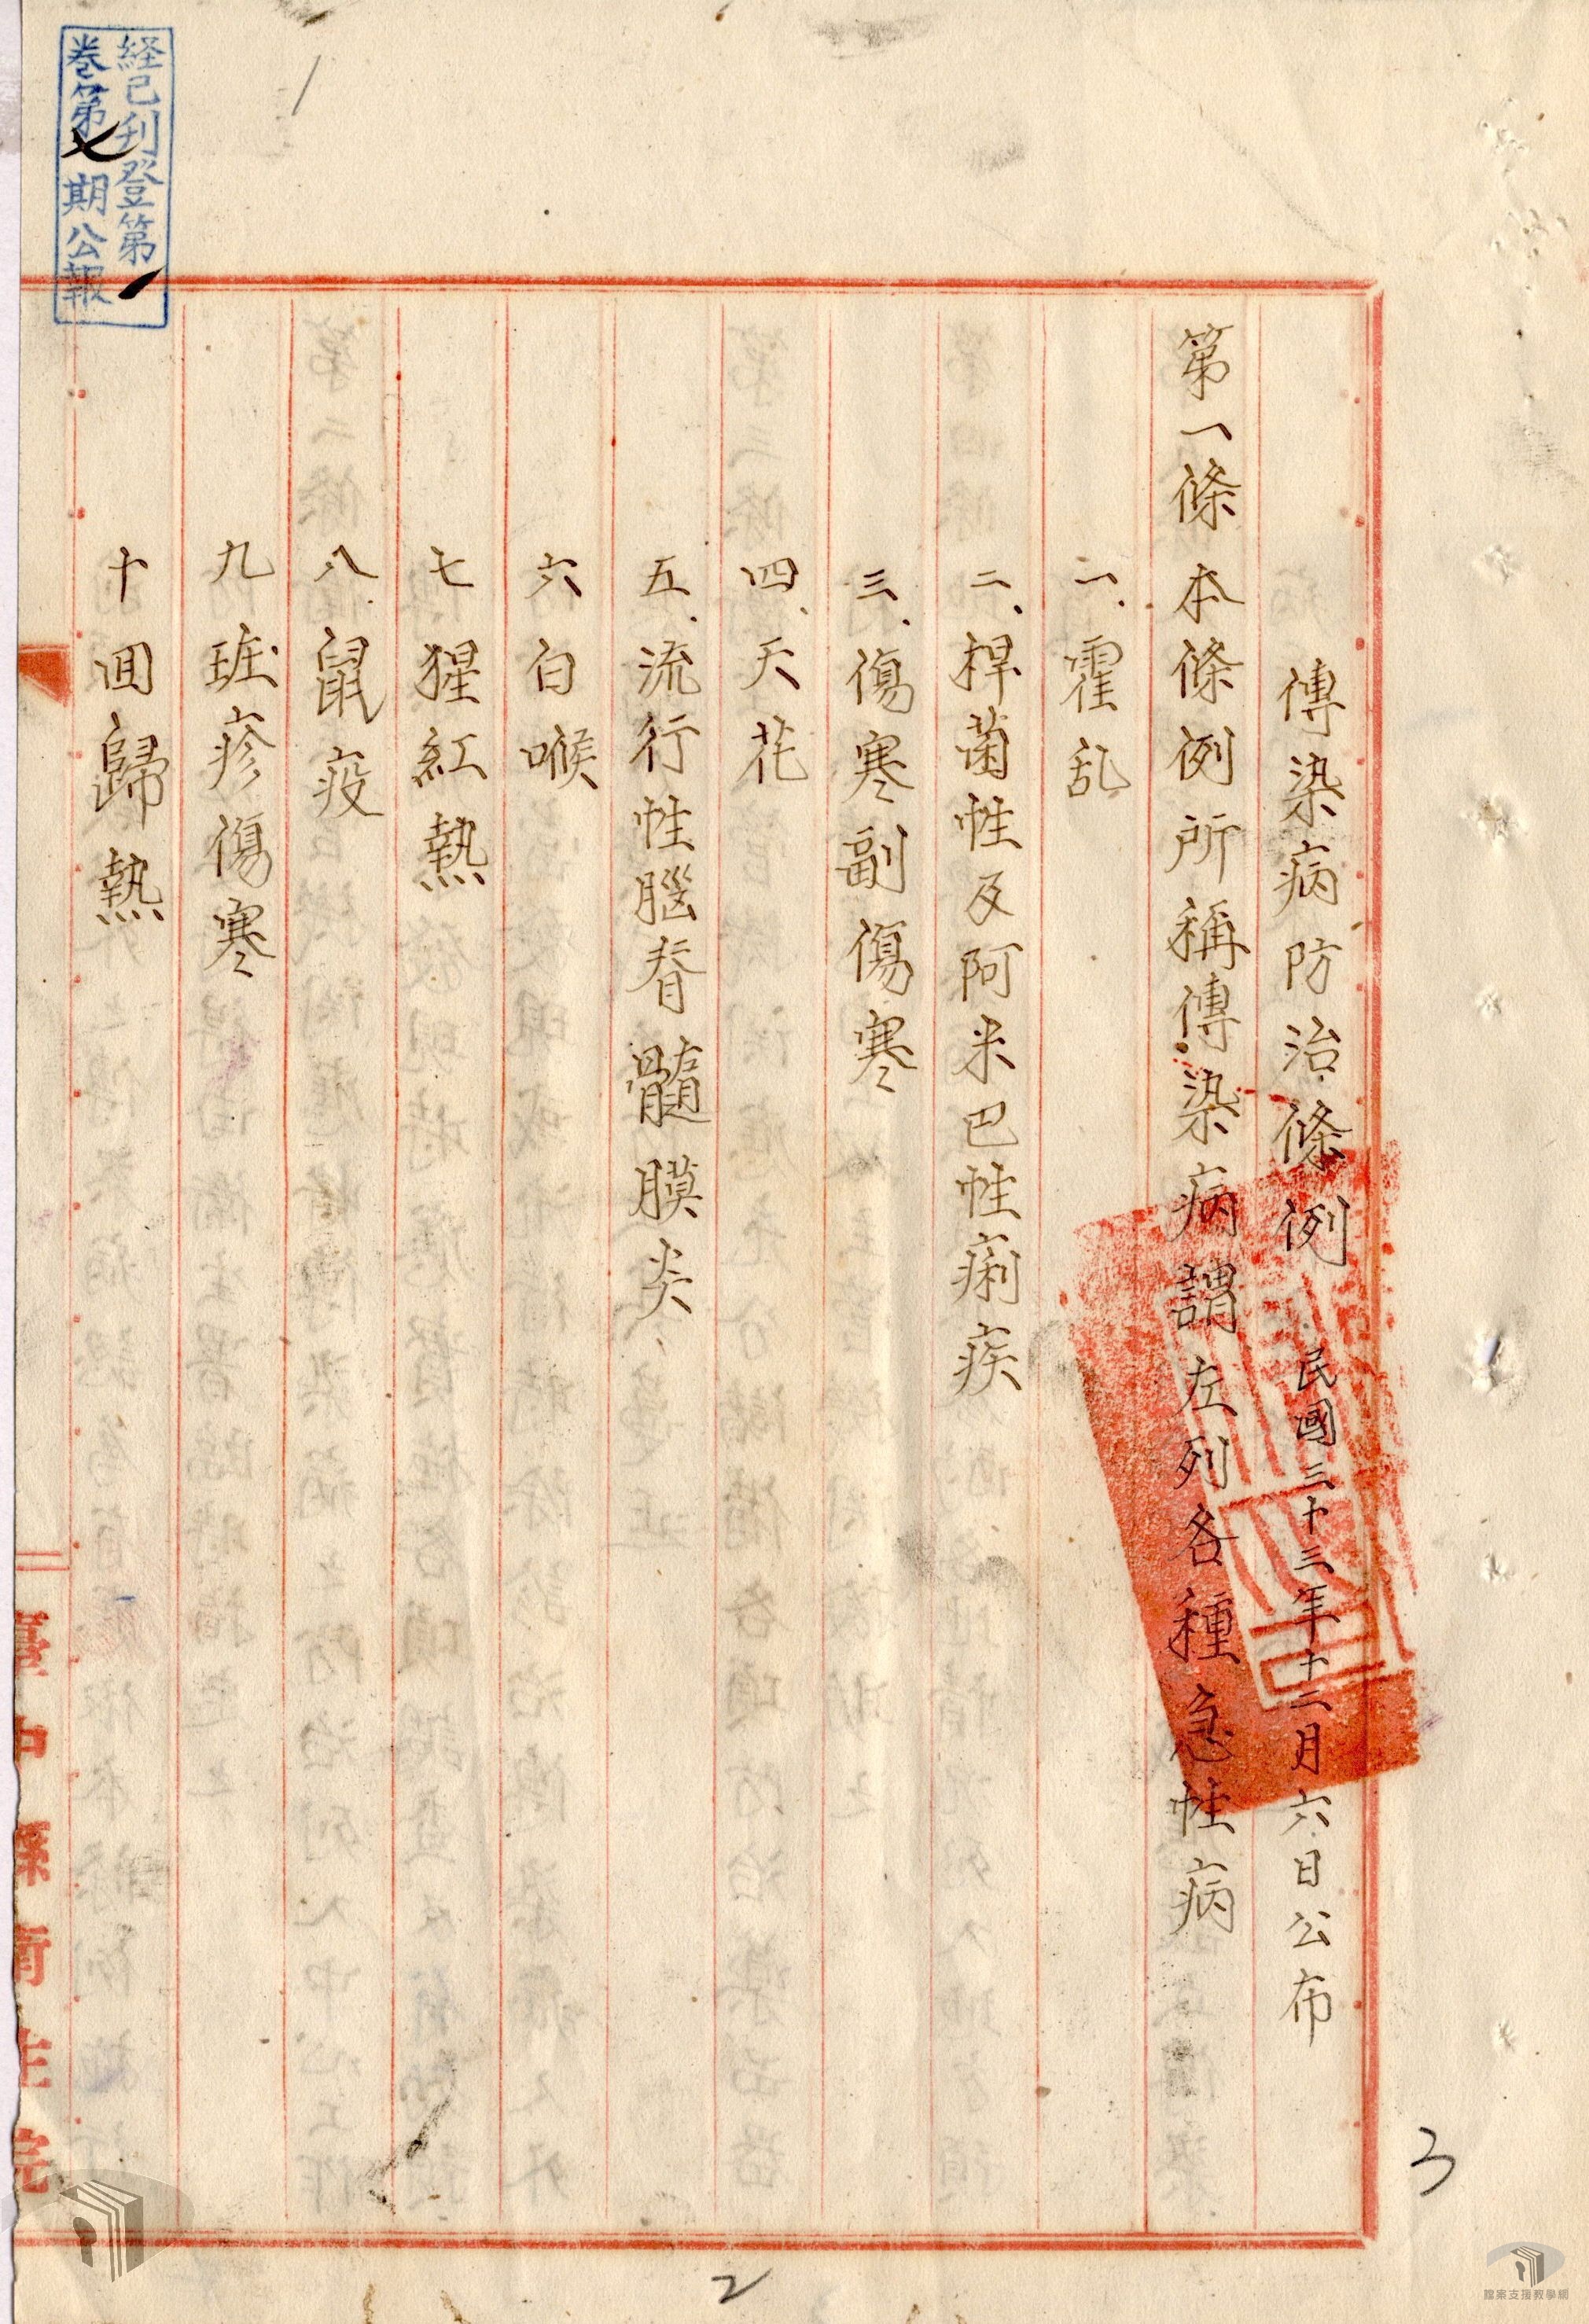 傳染病防治條例 民國三十三年十二月六日公布
第一條 本條例所稱傳染病謂左列各種急性病
一、霍乱
二、桿菌性及阿米巴性痢疾
三、傷寒副傷寒
四、天花
五、流行性腦脊髓膜炎
六 白喉
七 猩紅熱
八、鼠疫
九 斑疹傷寒
十 回歸熱
経已刋登第一
卷第七期公報
臺中縣衛生院
3
2
檔案支援教學網